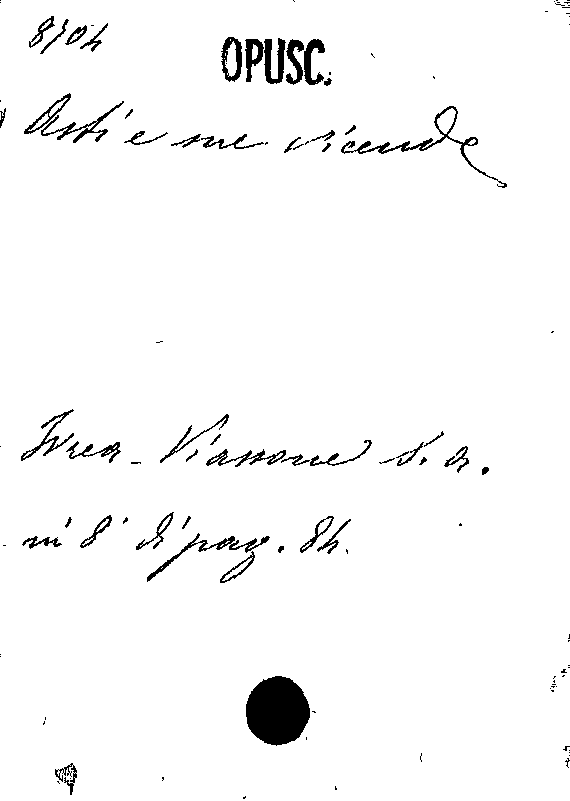 8704
OPUSC.
Asti e sue vicende
Ivrea - Viassone s. a.
in 8° di pag. 84.